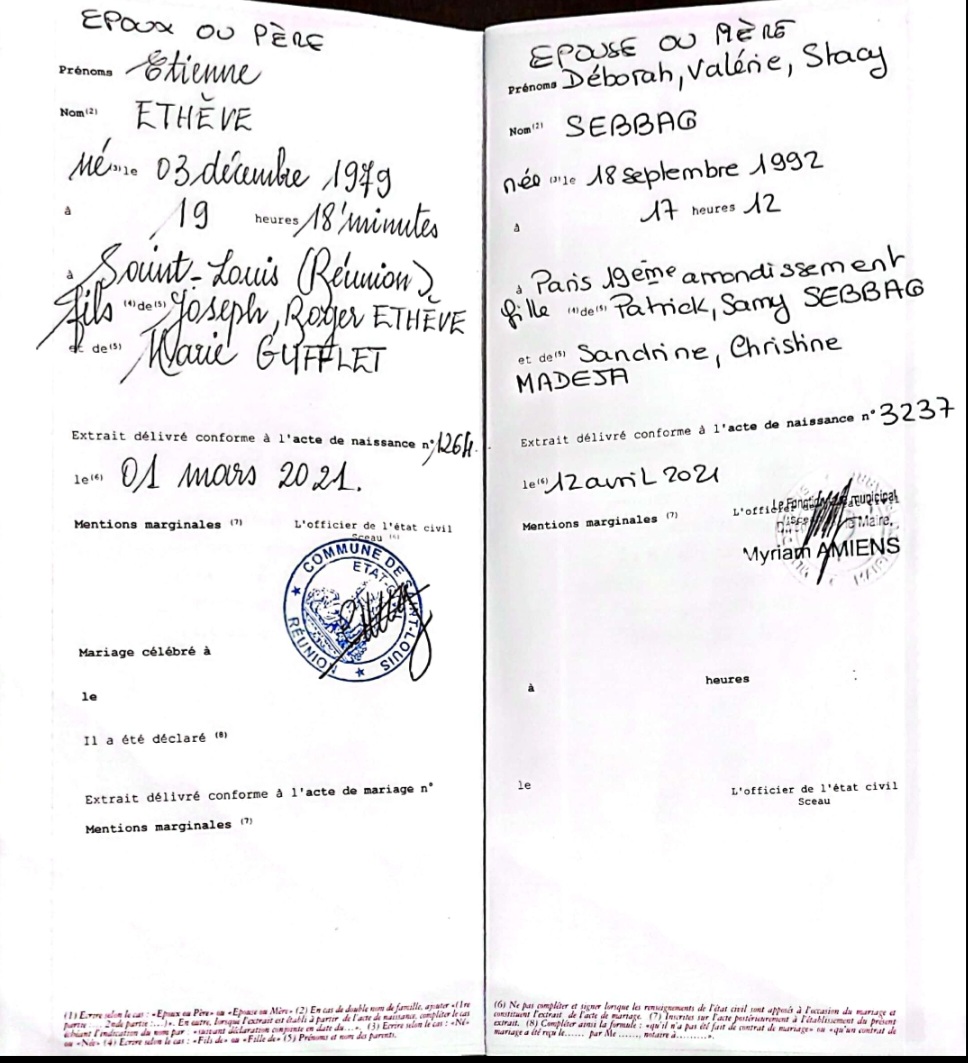 EPOUX OU PÈRE
Prénoms Etienne
Nom(2) ETHÈVE
Né(3) le 03 décembre 1979
à 19 heures 18 minutes
à Saint-Louis (Réunion)
fils (4) de(5) Joseph, Roger ETHÈVE
et de(5) Marie GUFFLET
Extrait délivré conforme à l'acte de naissance n° 1264.
le(6) 01 mars 2021.
Mentions marginales (7) L'officier de l'état civil
Sceau (6)
COMMUNE DE SAINT-LOUIS
ETAT-CIVIL
RÉUNION
Mariage célébré à
le
Il a été déclaré (8)
Extrait délivré conforme à l'acte de mariage n°
Mentions marginales (7)
(1) Ecrire selon le cas : «Epoux ou Père» ou «Epouse ou Mère» (2) En cas de double nom de famille, ajouter «(1re
partie :.... 2nde partie :...)». En outre, lorsque l'extrait est établi à partir de l'acte de naissance, compléter le cas
échéant l'indication du nom par : «suivant déclaration conjointe en date du...». (3) Ecrire selon le cas : «Né»
ou «Née» (4) Ecrire selon le cas : «Fils de» ou «Fille de» (5) Prénoms et nom des parents.
EPOUSE OU MÈRE
Prénoms Déborah, Valérie, Stacy
Nom(2) SEBBAG
née (3) le 18 septembre 1992
à 17 heures 12
à Paris 19ème arrondissement
fille (4) de(5) Patrick, Samy SEBBAG
et de(5) Sandrine, Christine
MADEJA
Extrait délivré conforme à l'acte de naissance n° 3237
le(6) 12 avril 2021
Mentions marginales (7) L'officier
municipal
le Maire,
Myriam AMIENS
à heures :
le L'officier de l'état civil
Sceau
(6) Ne pas compléter et signer lorsque les renseignements de l'état civil sont apposés à l'occasion du mariage et
constituent l'extrait de l'acte de mariage. (7) Inscrites sur l'acte postérieurement à l'établissement du présent
extrait. (8) Compléter ainsi la formule : «qu'il n'a pas été fait de contrat de mariage» ou «qu'un contrat de
mariage a été reçu le...... par Me ......, notaire à.........».